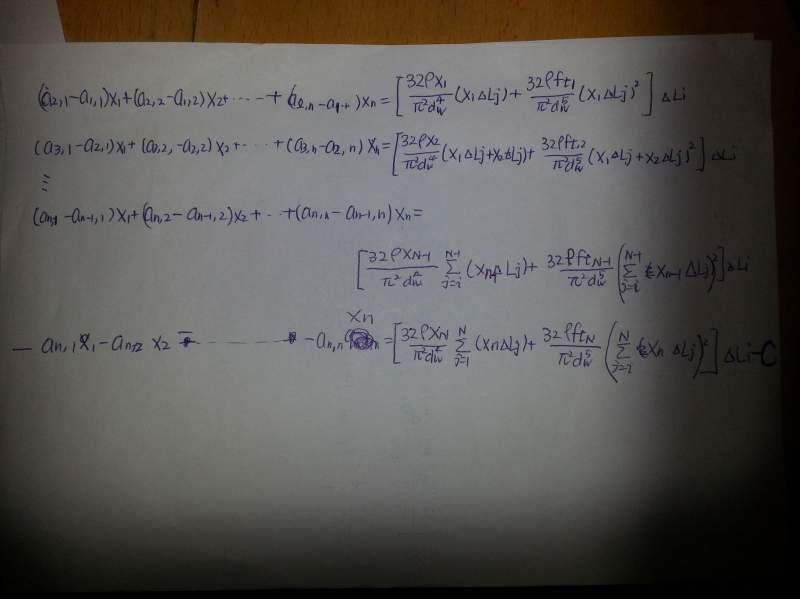 (a2,1-a1,1)x1+(a2,2-a1,2)x2+······+(a2,n-a1,n)xn=[32ρx1/π²dw⁴(x1ΔLj)+32ρft1/π²dw⁵(x1ΔLj)²]ΔLi
(a3,1-a2,1)x1+(a3,2-a2,2)x2+···+(a3,n-a2,n)xn=[32ρx2/π²dw⁴(x1ΔLj+x2ΔLj)+32ρft,2/π²dw⁵(x1ΔLj+x2ΔLj)²]ΔLi
⋮
(an,1-an-1,1)x1+(an,2-an-1,2)x2+···+(an,n-an-1,n)xn=
[32ρxN-1/π²dw⁴ Σ_{j=i}^{N-1}(xn-1ΔLj)+32ρftN-1/π²dw⁵(Σ_{j=i}^{N-1}xn-1ΔLj)²]ΔLi
xn
-an,1x1-an,2x2-·······-an,n=[32ρxN/π²dw⁴ Σ_{j=i}^{N}(xnΔLj)+32ρftN/π²dw⁵(Σ_{j=i}^{N}xnΔLj)²]ΔLi-C